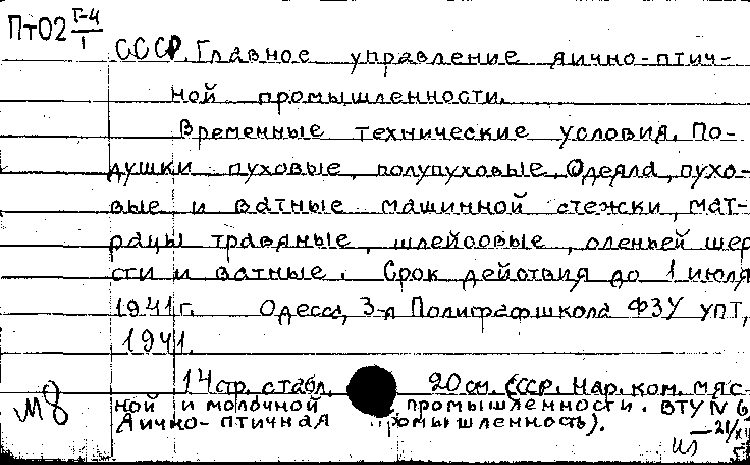 ПтО2 Г-4/1
СССР. Главное управление яично-птич-
ной промышленности.
Временные технические условия. По-
душки пуховые, полупуховые, Одеяла, пухо-
вые и ватные машинной стежки, мат-
рацы травяные, шлейсовые, оленьей шер
сти и ватные. Срок действия до 1 июля
1941г. Одесса, 3-я Полиграфшкола ФЗУ УПТ,
1941.
14стр. с табл. 20см. СССР. Нар. ком. мяс
ной и молочной промышленности. ВТУ № 6
Яично-птичная промышленность).
м8